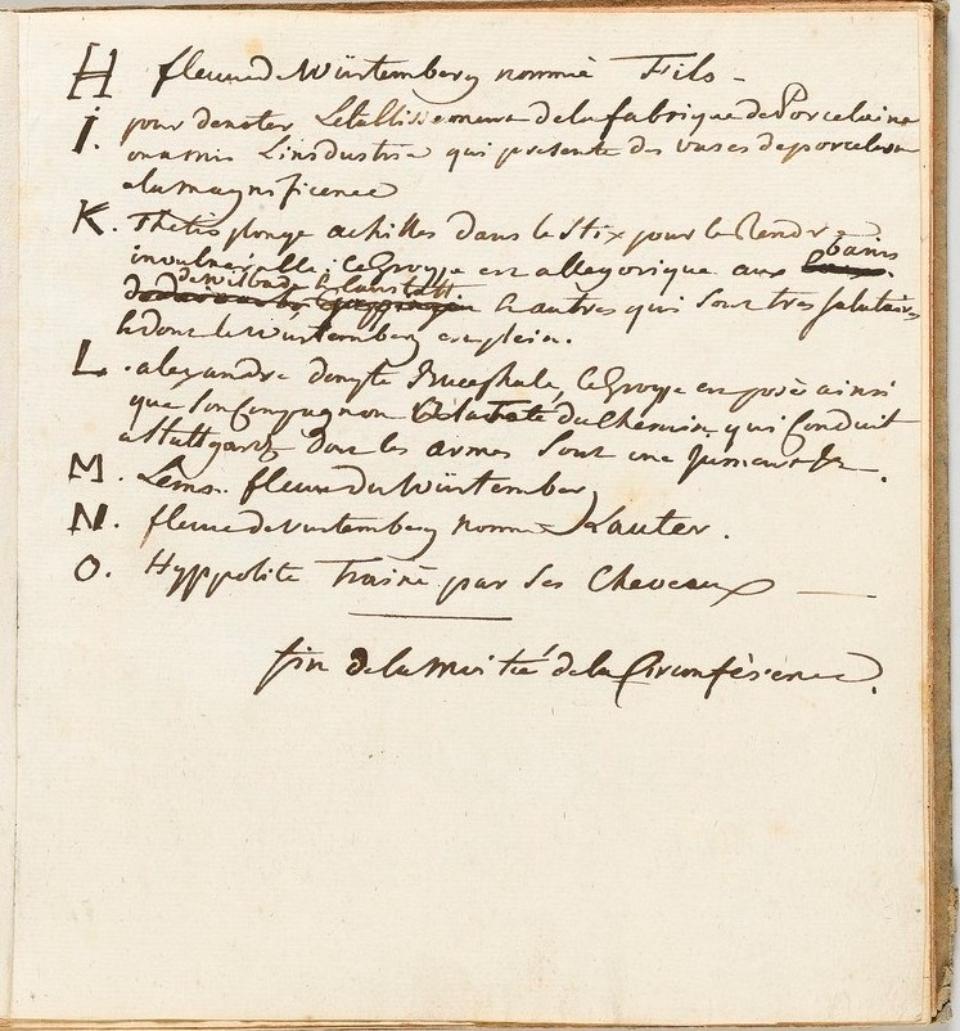 H fleuve de Würtemberg nommé Fils -
i. pour denoter L'etablissement de la fabrique de Porcelaine
on a mis L'insdustrie qui presente des vases de porcelaine
a la magnificence
K. Thetis plonge achilles dans le Stix pour le Rendre
invulnerable; ce Groupe est allegorique aux bains
de wilbade & Canstatt
& autres qui sont tres salutaires
& dont le Wurtemberg est plein.
L. alexandre dompte Bucephale, ce Groupe est posé ainsi
que son Compagnon du Chemin qui Conduit
a Stuttgardt dont les armes sont une jument &c.
M. Lems. fleuve du Würtemberg
N. fleuve de Vurtemberg nommé Lauter.
O. Hyppolite Trainé par ses Cheveaux —
fin de la moitié de la Circonférence.